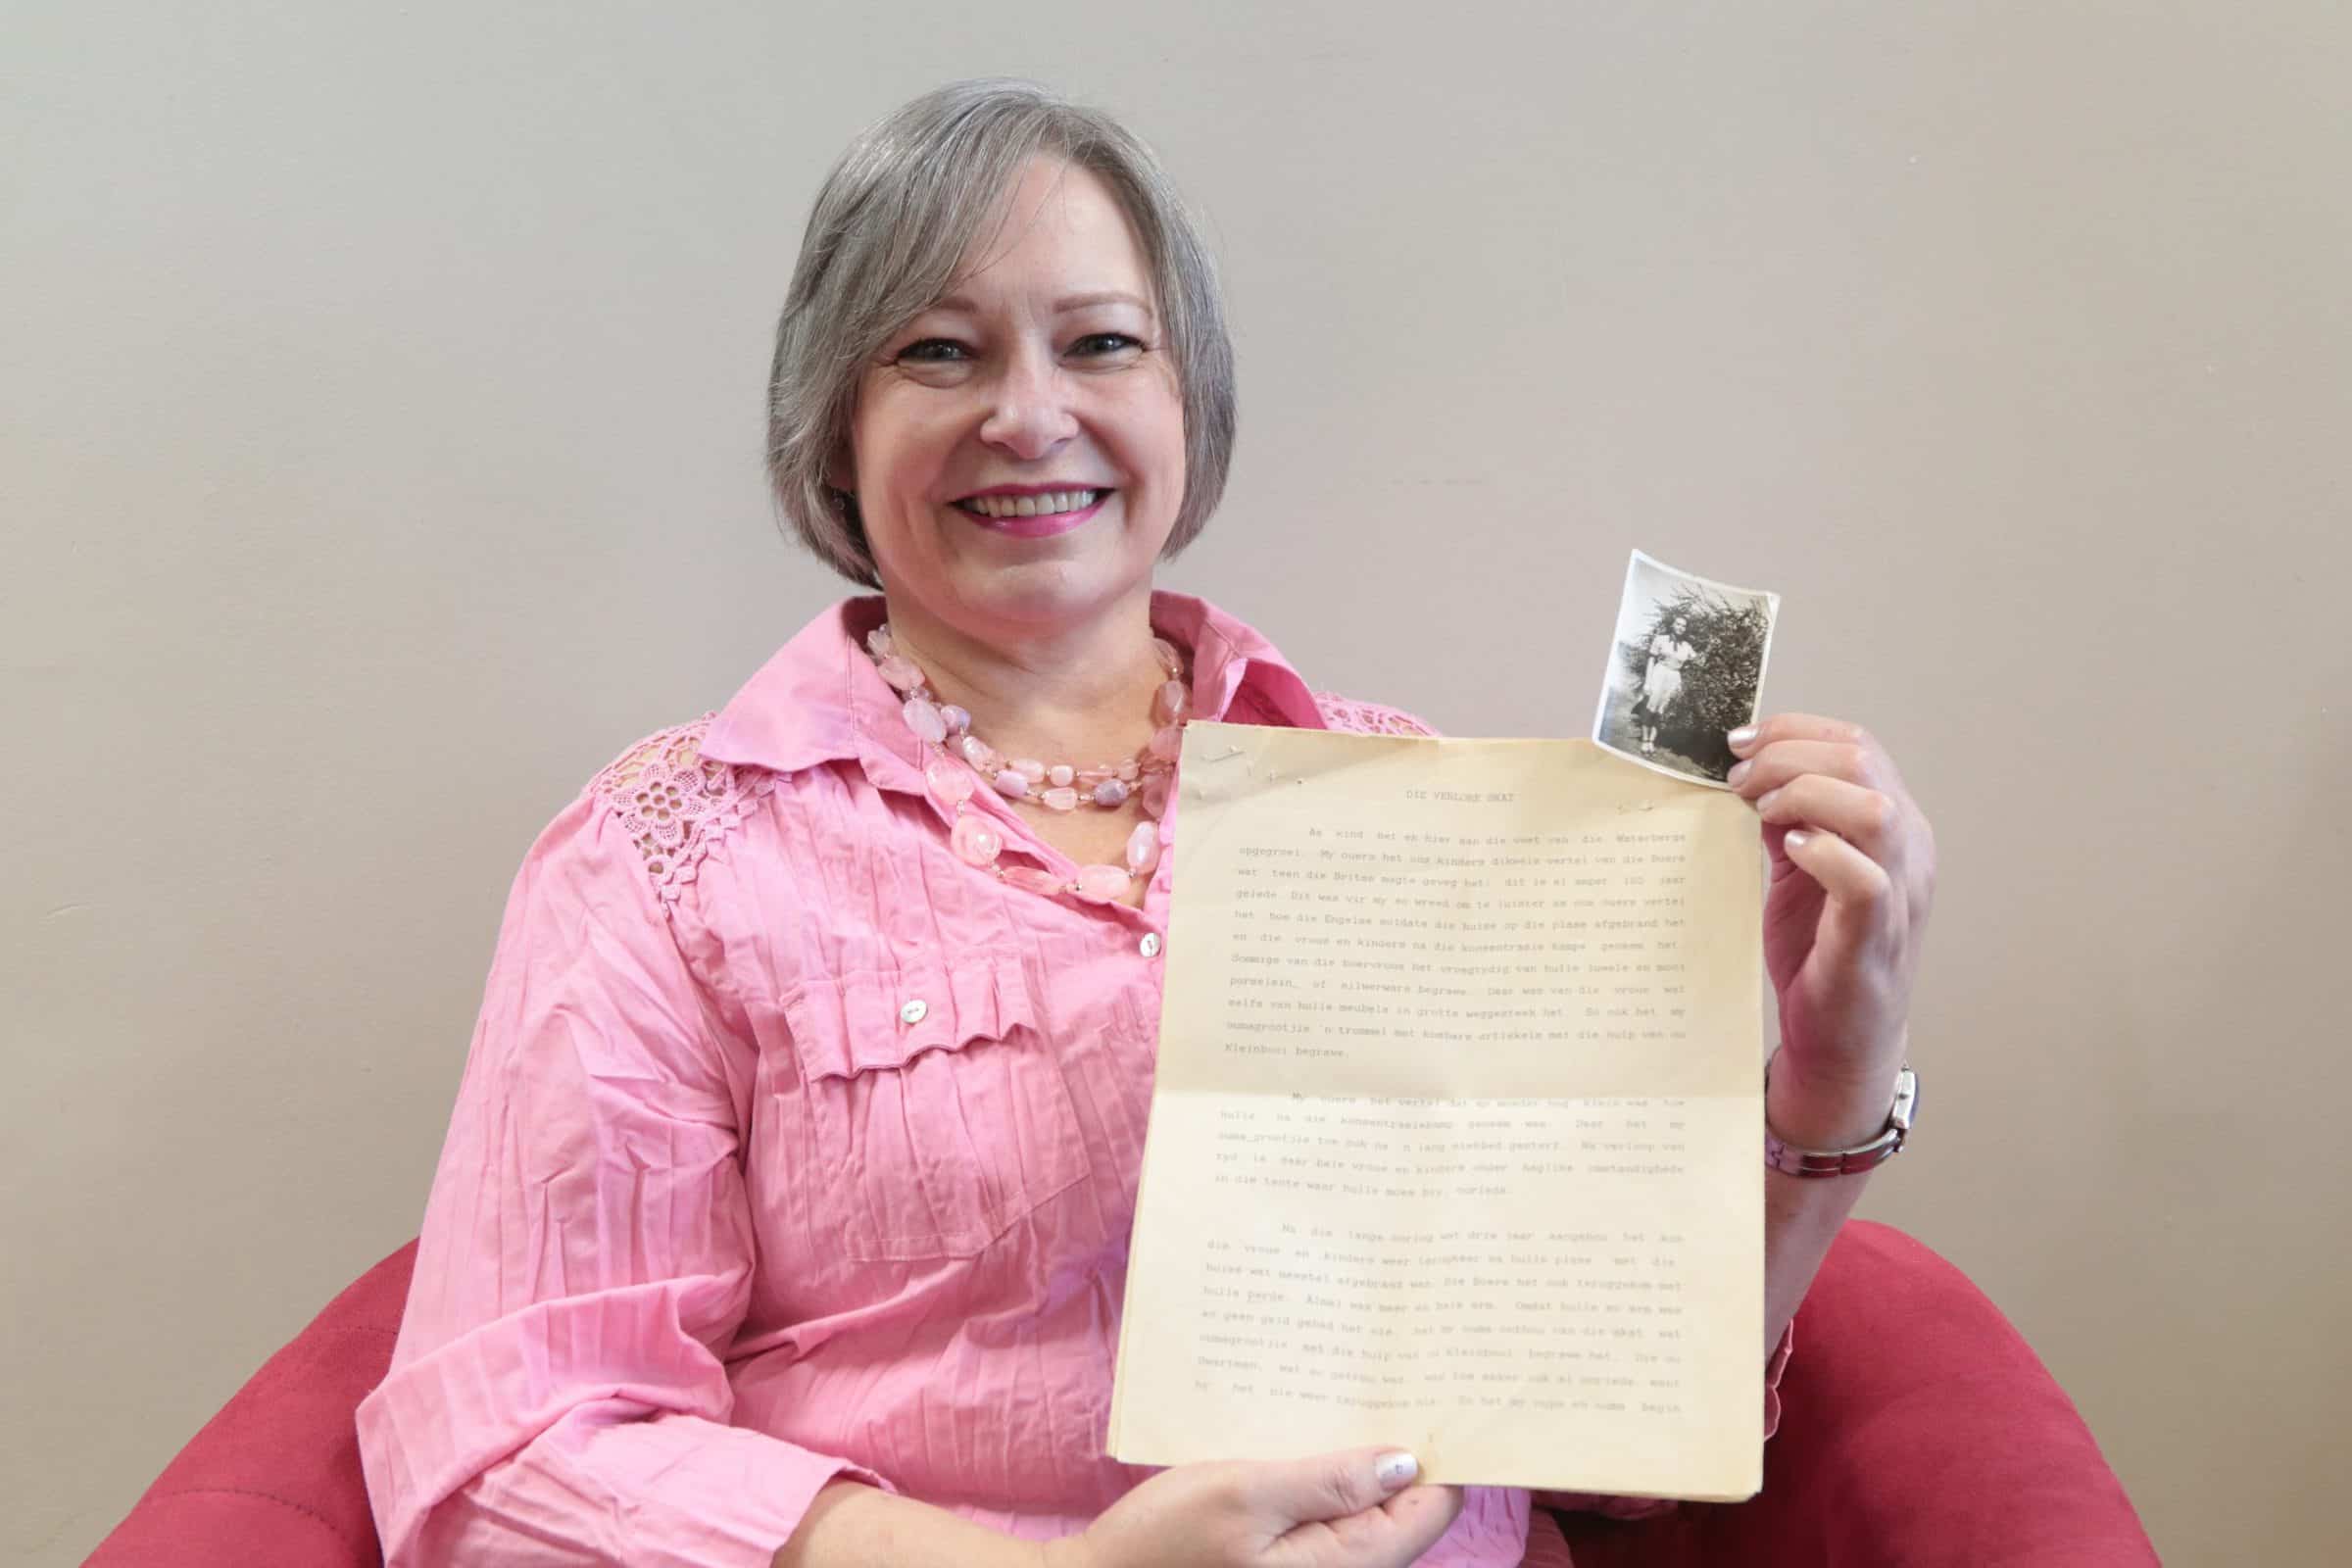 DIE VERLORE SKAT
As kind het ek hier aan die voet van die Waterberge
opgegroei. My ouers het ons kinders dikwels vertel van die Boere
wat teen die Britse magte geveg het; dit is al amper 100 jaar
gelede. Dit was vir my so wreed om te luister as ons ouers vertel
het hoe die Engelse soldate die huise op die plase afgebrand het
en die vroue en kinders na die konsentrasie kampe geneem het.
Sommige van die boervroue het vroegtydig van hulle juwele en mooi
porselein, of silwerware begrawe. Daar was van die vroue wat
selfs van hulle meubels in grotte weggesteek het. So ook het my
oumagrootjie 'n trommel met kosbare artiekels met die hulp van ou
Kleinbooi begrawe.
My ouers het vertel dat my moeder nog klein was toe
hulle na die konsentrasiekamp geneem was. Daar het my
ouma grootjie toe ook na 'n lang siekbed gesterf. Na verloop van
tyd is daar baie vroue en kinders onder haglike omstandighede
in die tente waar hulle moes bly, oorlede.
Na die lange oorlog wat drie jaar aangehou het kon
die vroue en kinders weer terugkeer na hulle plase met die
huise wat meestal afgebrand was. Die Boere het ook teruggekom met
hulle perde. Almal was moeg en baie arm. Omdat hulle so arm was
en geen geld gehad het nie, het my ouma onthou van die skat wat
oumagrootjie met die hulp van ou Kleinbooi begrawe het. Die ou
Swartman, wat so getrou was, was toe seker ook al oorlede want
hy het nie weer teruggekom nie. So het my oupa en ouma begin